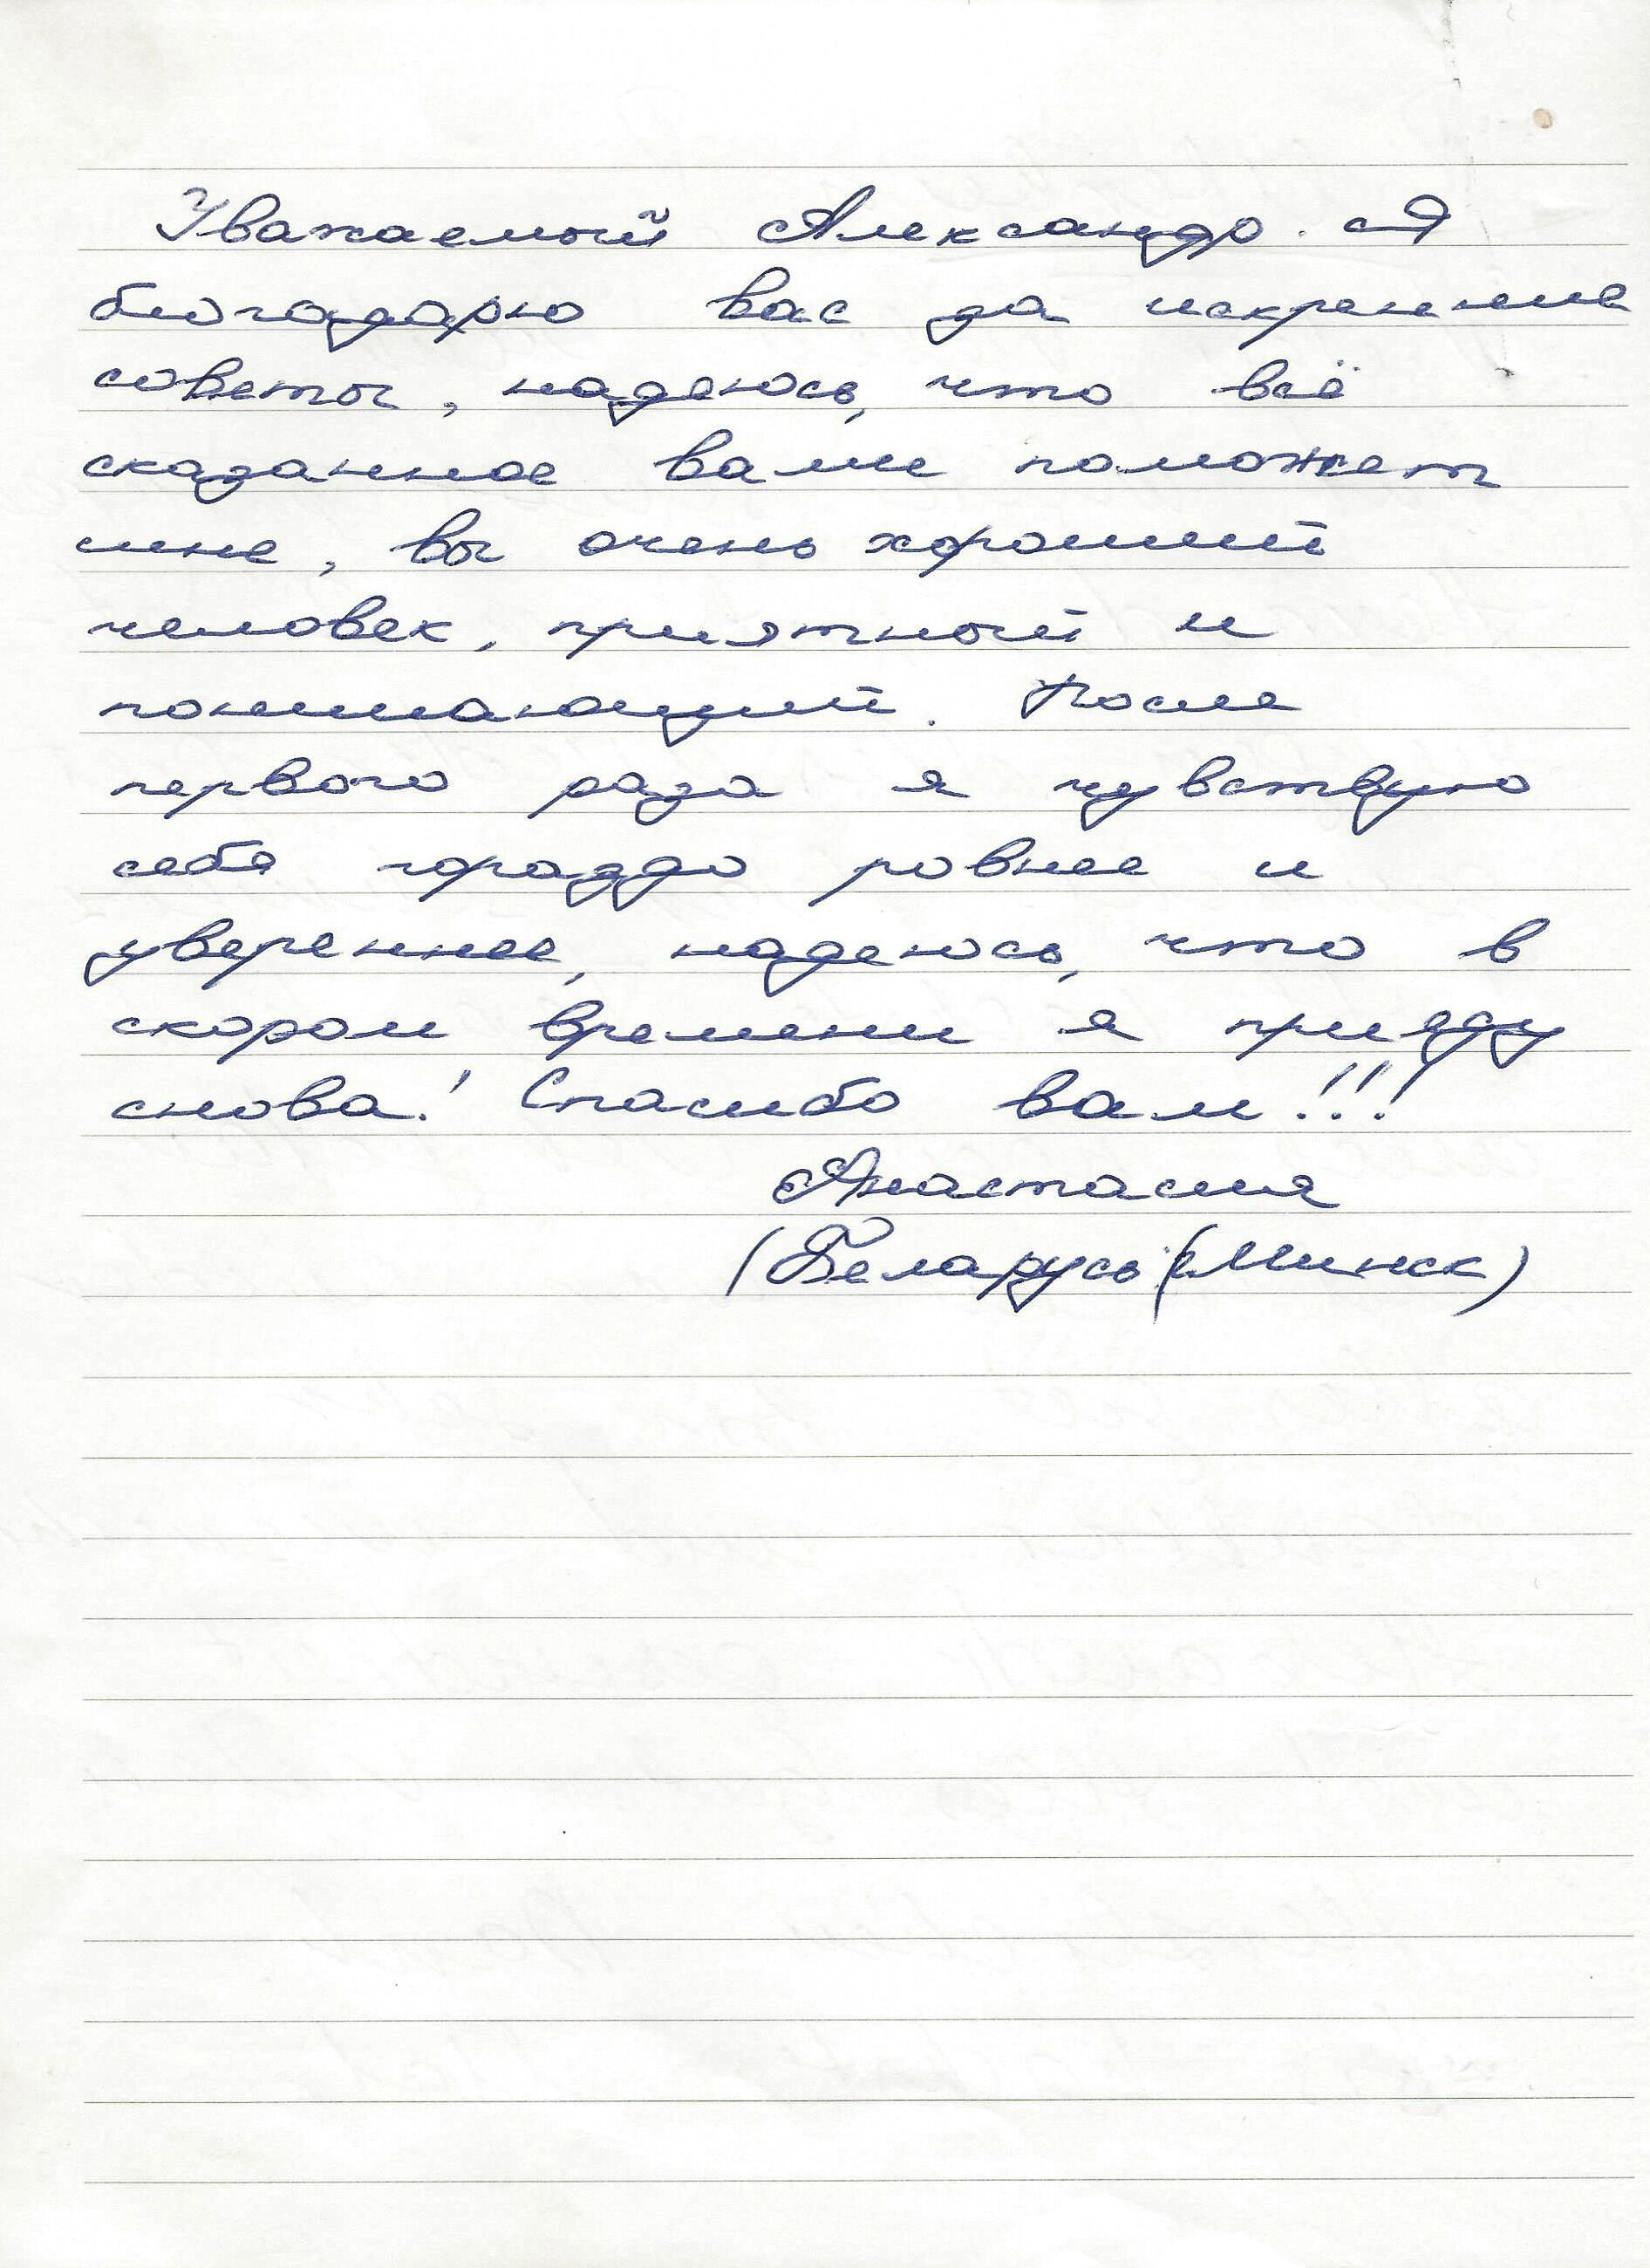 Уважаемый Александр. Я
благодарю вас за искренние
советы, надеюсь, что всё
сказанное вами поможет
мне, вы очень хороший
человек, приятный и
понимающий. После
первого раза я чувствую
себя гораздо ровнее и
увереннее, надеюсь, что в
скором времени я приеду
снова! Спасибо вам!!!
Анастасия
(Беларусь (Минск)